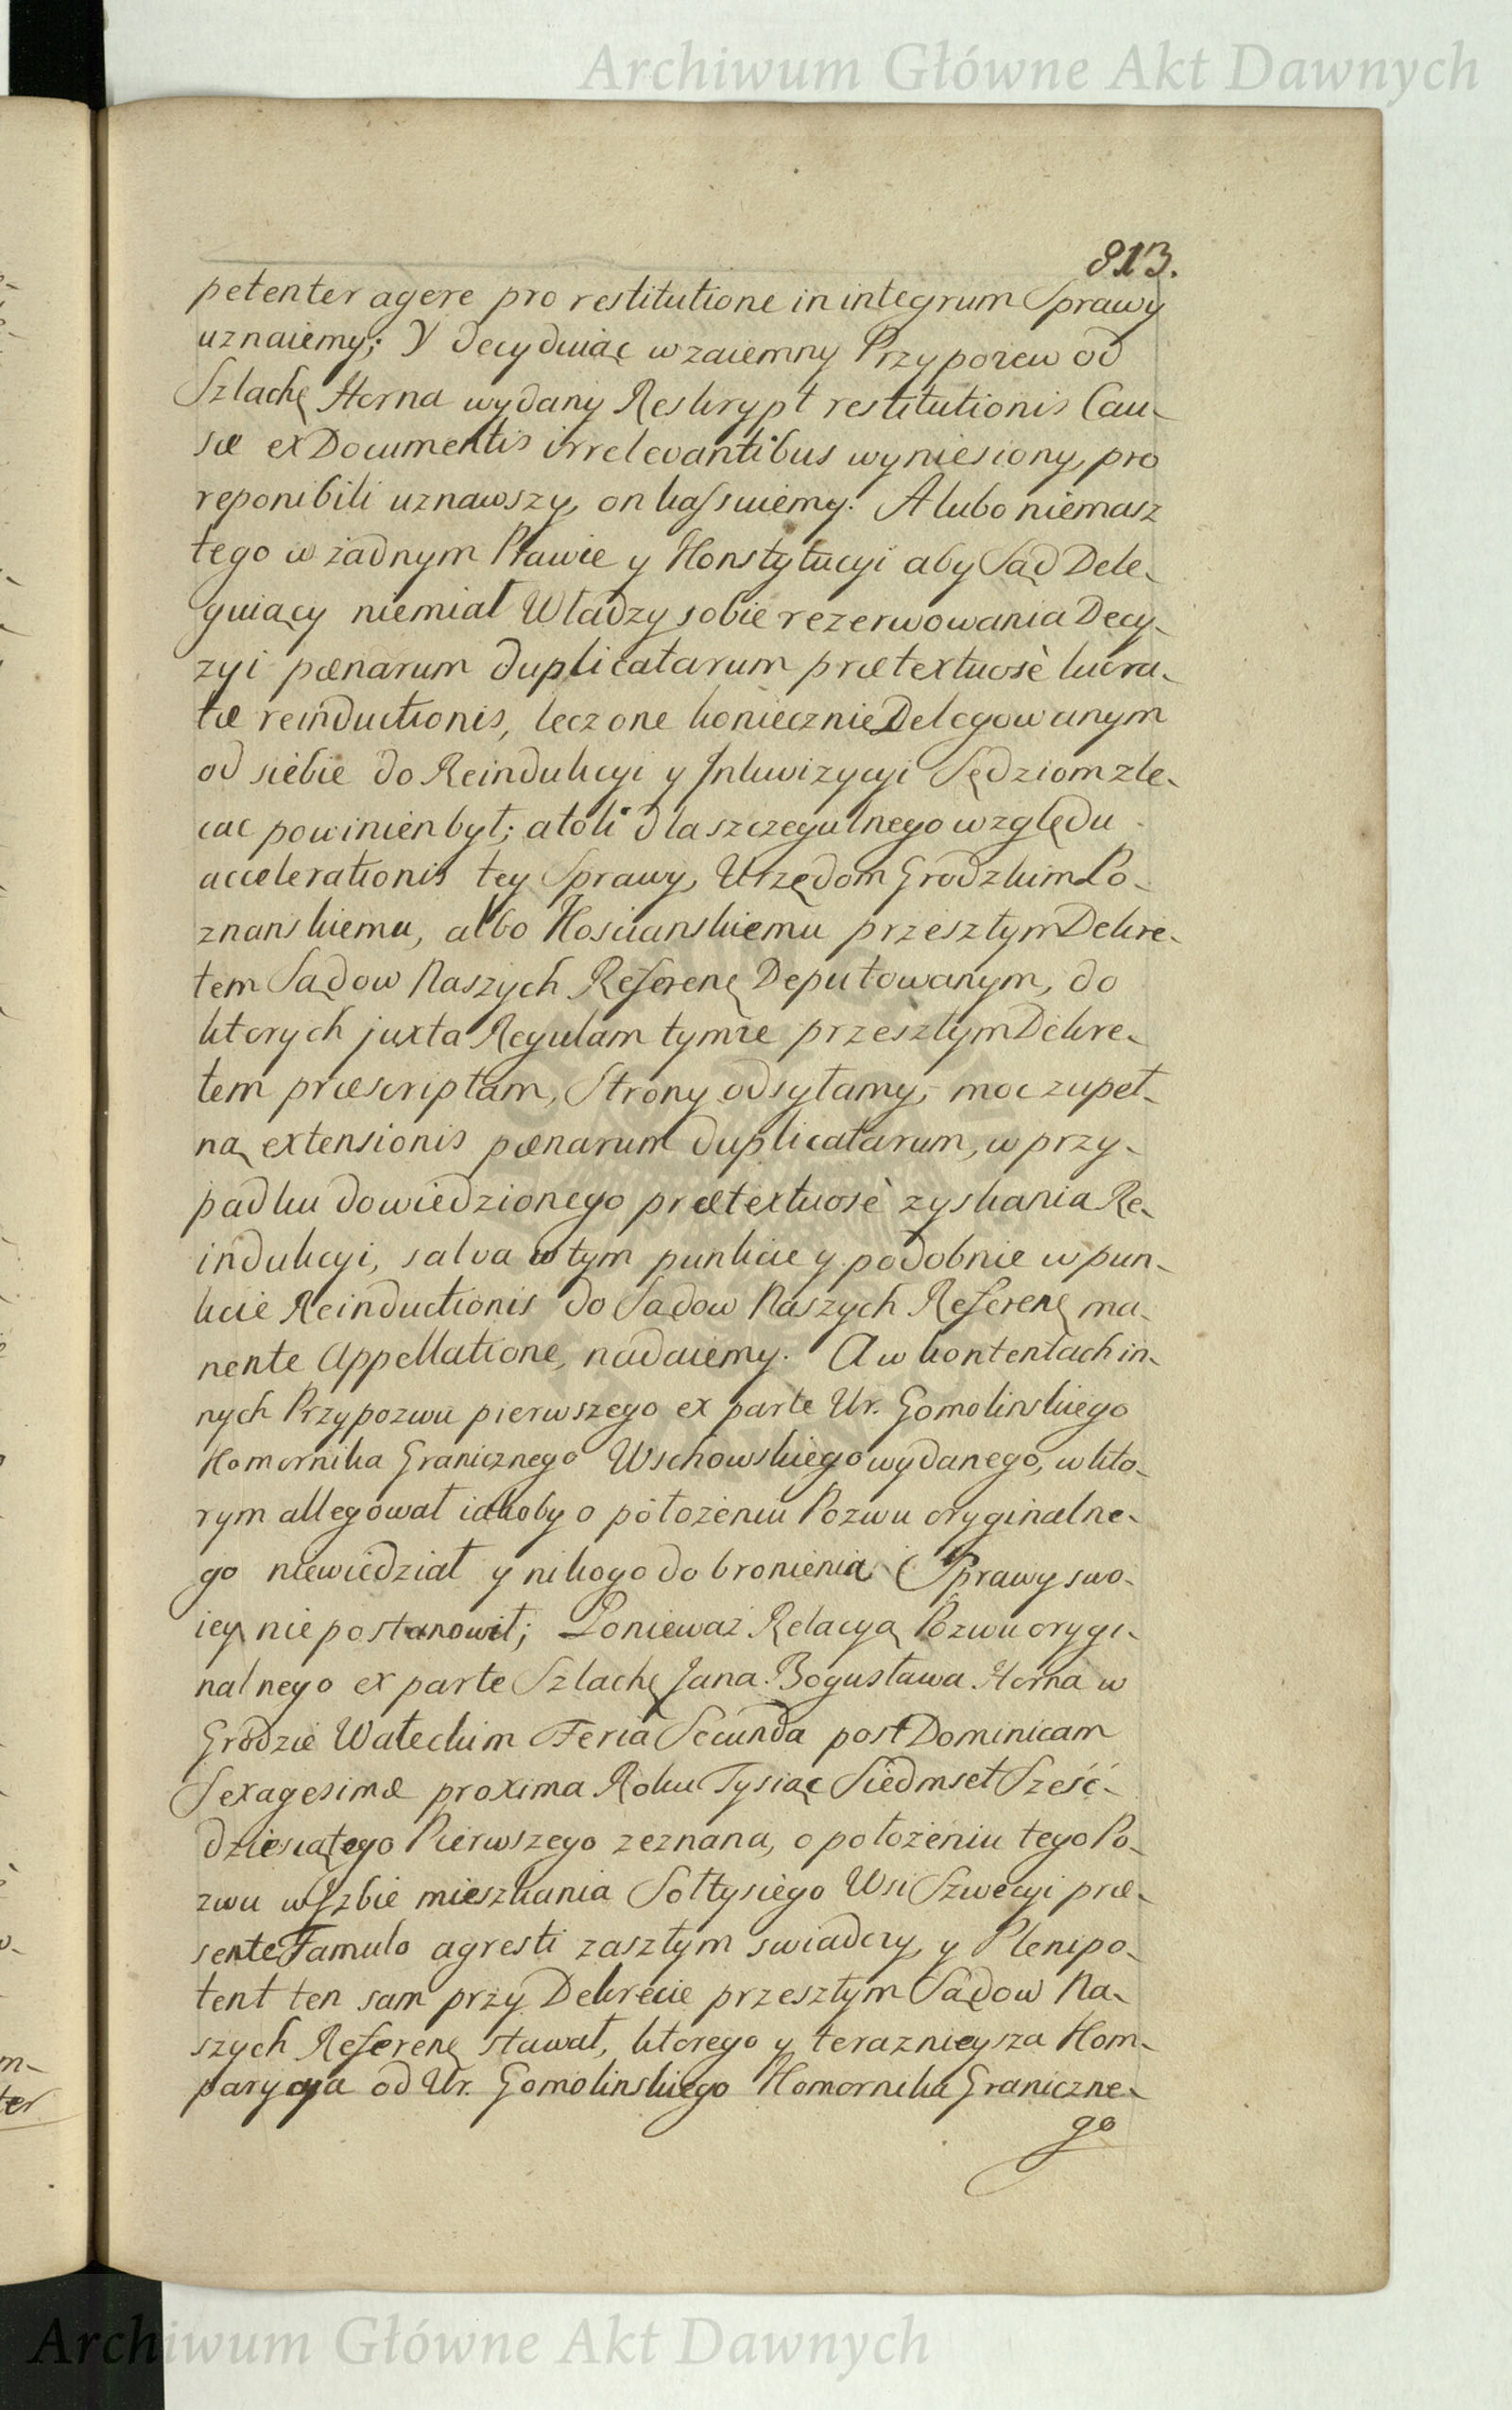 Archiwum Główne Akt Dawnych
813.
petenter agere pro restitutione in integrum Sprawy
uznaiemy; Y decyduiąc wzaiemny Przypozew od
Szlachę Horna wydany Reskrypt restitutionis Cau-
sæ ex Documentis irrelevantibus wyniesiony, pro
reponibili uznawszy, on kassuiemy. A lubo niemasz
tego w żadnym Prawie y Konstytucyi aby Sąd Dele-
guiący niemiał Władzy sobie rezerwowania Decy-
zyi pœnarum duplicatarum prætextuosè lucra-
tæ reinductionis, lecz one koniecznie Delegowanym
od siebie do Reindukcyi y Inkwizycyi Sędziom zle-
cac powinien był; atoli dla szczegulnego względu
accelerationis tey Sprawy, Urzędom Grodzkim Po-
znanskiemu, albo Kościanskiemu przeszłym Dekre-
tem Sądow Naszych Referenę Deputowanym, do
ktorych juxta Regulam tymże przeszłym Dekre-
tem præscriptam, Strony odsyłamy, moc zupeł-
ną extensionis pœnarum duplicatarum, w przy-
padku dowiedzionego prætextuosè zyskania Re-
indukcyi, salva w tym punkcie y podobnie w pun-
kcie Reinductionis do Sądow Naszych Referenę ma-
nente Appellatione, nadaiemy. A w kontentach in-
nych Przypozwu pierwszego ex parte Ur. Gomolinskiego
Komornika Granicznego Wschowskiego wydanego, w kto-
rym allegował iakoby o położeniu Pozwu oryginalne-
go niewiedział y nikogo do bronienia Sprawy swo-
iey nie postanowił; Ponieważ Relacya Pozwu orygi-
nalnego ex parte Szlachę Jana Bogusława Horna w
Grodzie Wałeckim Feria Secunda post Dominicam
Sexagesimæ proxima Roku Tysiąc Siedmset Sześć-
dziesiątego Pierwszego zeznana, o położeniu tego Po-
zwu w Izbie mieszkania Sołtysiego Wsi Szwecyi præ-
sente Famulo agresti zaszłym swiadczy, y Plenipo-
tent ten sam przy Dekrecie przeszłym Sądow Na-
szych Referenę stawał, ktorego y teraznieysza Kom-
parycya od Ur. Gomolinskiego Komornika Graniczne-
go
Archiwum Główne Akt Dawnych